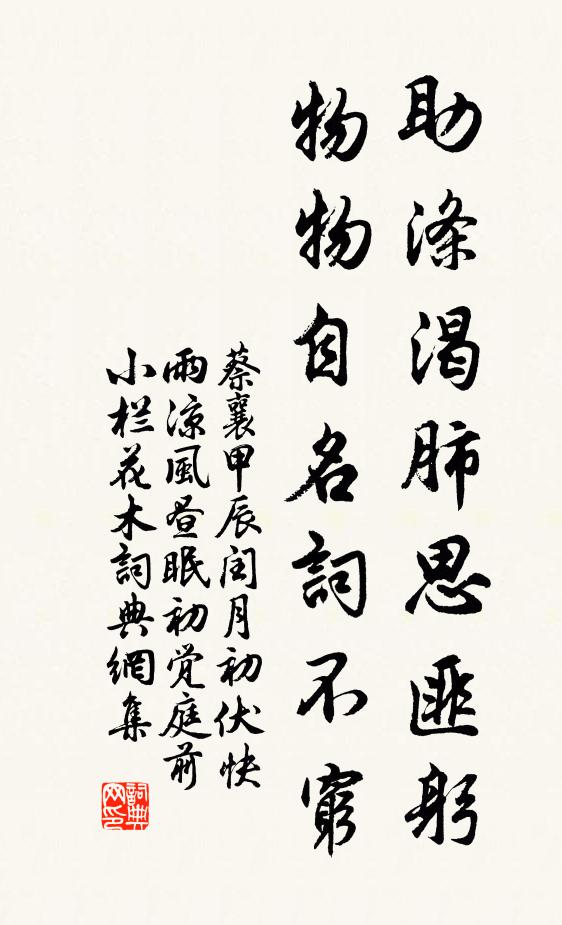 助滌渴肺思匪躬
物物自名詞不窮
蔡襄甲辰闰月初伏快
雨凉風昼眠初覚庭前
小栏花木詞典網集
詞典
网印